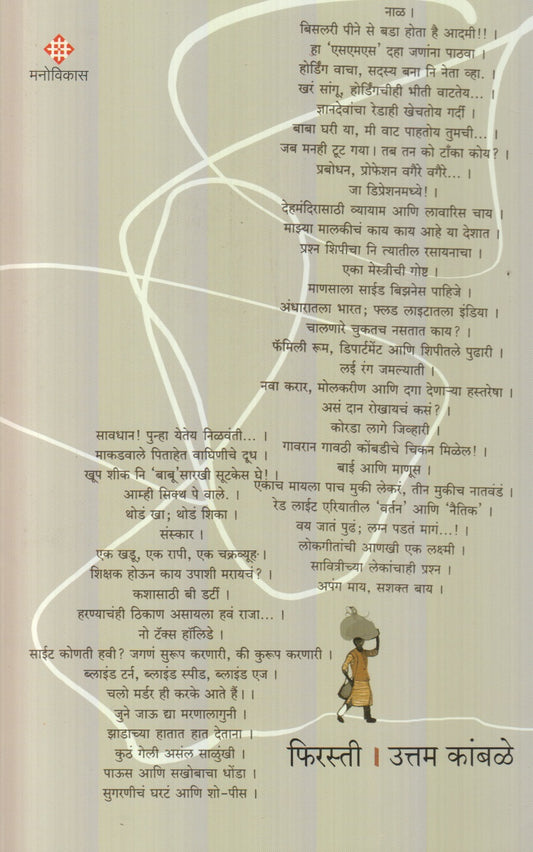 मनोविकास
नाळ ।
बिसलरी पीने से बडा होता है आदमी!! ।
हा 'एसएमएस' दहा जणांना पाठवा ।
होर्डिंग वाचा, सदस्य बना नि नेता व्हा. ।
खरं सांगू, होर्डिंगचीही भीती वाटतेय... ।
ज्ञानदेवांचा रेडाही खेचतोय गर्दी ।
बाबा घरी या, मी वाट पाहतोय तुमची... ।
जब मनही टूट गया। तब तन को टाँका कोय? ।
प्रबोधन, प्रोफेशन वगैरे वगैरे... ।
जा डिप्रेशनमध्ये! ।
देहमंदिरासाठी व्यायाम आणि लावारिस चाय ।
माझ्या मालकीचं काय काय आहे या देशात ।
प्रश्न शिपीचा नि त्यातील रसायनाचा ।
एका मेस्त्रीची गोष्ट ।
माणसाला साईड बिझनेस पाहिजे ।
अंधारातला भारत; फ्लड लाइटातला इंडिया ।
चालणारे चुकतच नसतात काय? ।
फॅमिली रूम, डिपार्टमेंट आणि शिपीतले पुढारी ।
लई रंग जमल्याती ।
नवा करार, मोलकरीण आणि दगा देणाऱ्या हस्तरेषा ।
असं दान रोखायचं कसं? ।
कोरडा लागे जिव्हारी ।
गावरान गावठी कोंबडीचे चिकन मिळेल! ।
बाई आणि माणूस ।
एकाच मायला पाच मुकी लेकरं, तीन मुकीच नातवंडं ।
रेड लाईट एरियातील 'वर्तन' आणि 'नैतिक' ।
वय जातं पुढं; लग्न पडतं मागं...! ।
लोकगीतांची आणखी एक लक्ष्मी ।
सावित्रीच्या लेकांचाही प्रश्न ।
अपंग माय, सशक्त बाय ।
सावधान! पुन्हा येतेय निळवंती... ।
माकडवाले पिताहेत वाघिणीचे दूध ।
खूप शीक नि 'बाबू'सारखी सूटकेस घे! ।
आम्ही सिक्थ पे वाले. ।
थोडं खा; थोडं शिका ।
संस्कार ।
एक खडू, एक रापी, एक चक्रव्यूह ।
शिक्षक होऊन काय उपाशी मरायचं? ।
कशासाठी बी डर्टी ।
हरण्याचंही ठिकाण असायला हवं राजा... ।
नो टॅक्स हॉलिडे ।
साईट कोणती हवी? जगणं सुरूप करणारी, की कुरूप करणारी ।
ब्लाइंड टर्न, ब्लाइंड स्पीड, ब्लाइंड एज ।
चलो मर्डर ही करके आते हैं। ।
जुने जाऊ द्या मरणालागुनी ।
झाडांच्या हातात हात देताना ।
कुठं गेली असंल साळुंखी ।
पाऊस आणि सखोबाचा धोंडा ।
सुगरणीचं घरटं आणि शो-पीस ।
फिरस्ती । उत्तम कांबळे